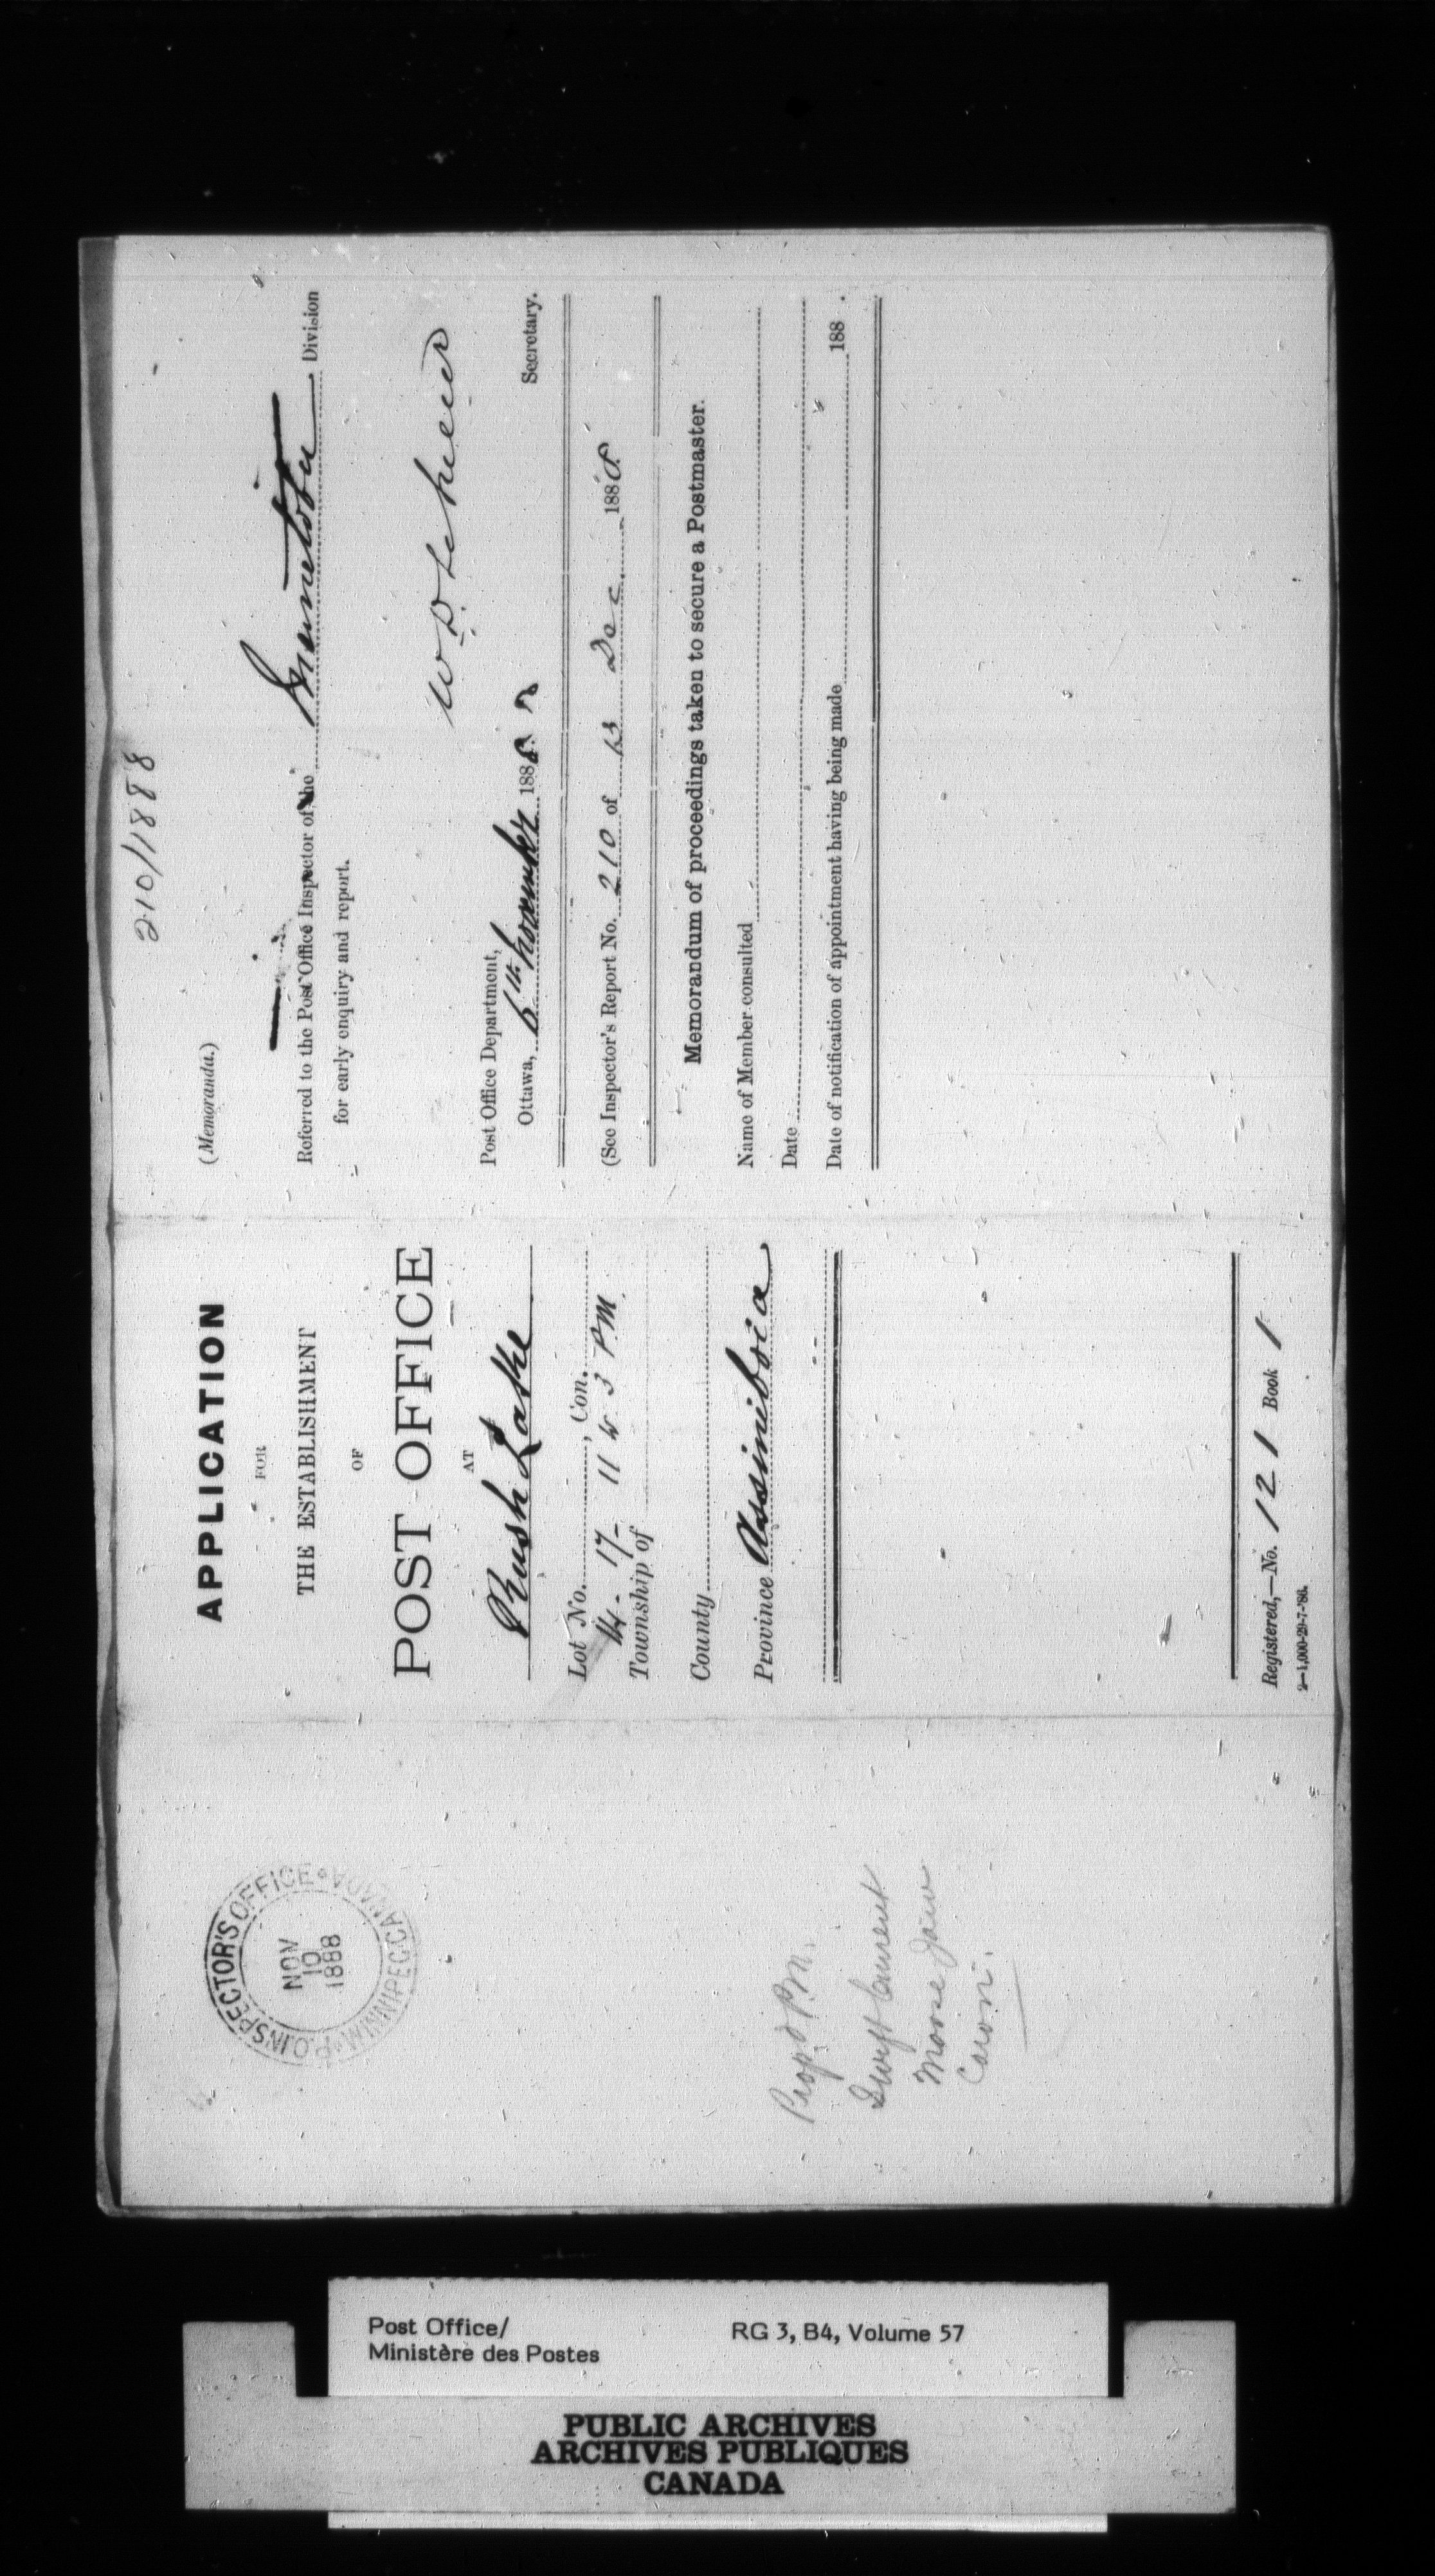 210/1888
(Memoranda.)
Referred to the Post Office Inspector of the Manitoba Division
for early enquiry and report.
W D LeSueur
Secretary.
Post Office Department,
Ottawa, 6th November 1888.
(See Inspector's Report No. 210 of 13 Dec. 1888
Memorandum of proceedings taken to secure a Postmaster.
Name of Member consulted
Date
Date of notification of appointment having being made 188 .
APPLICATION
FOR
THE ESTABLISHMENT
OF
POST OFFICE
AT
Rush Lake
Lot No. , Con.
14 - 17 - 11 W. 3 P.M.
Township of
County
Province Assiniboia
Registered,—No. 121 Book 1
2—1,000-29-7-'86.
P.O. INSPECTOR'S OFFICE
WINNIPEG CANADA
NOV
10
1888
Prop'd P.M.
Swift Current
Moose Jaw
Caron.
Post Office/
Ministère des Postes
RG 3, B4, Volume 57
PUBLIC ARCHIVES
ARCHIVES PUBLIQUES
CANADA